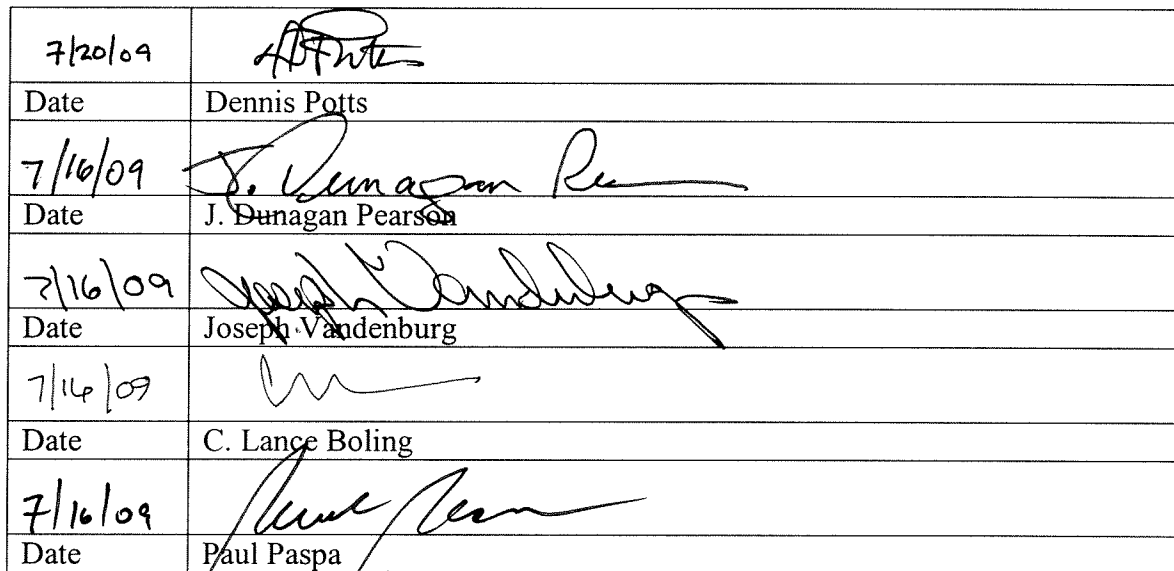 7/20/09
Date Dennis Potts
7/16/09 J. Dunagan Pearson
Date J. Dunagan Pearson
7/16/09 Joseph Vandenburg
Date Joseph Vandenburg
7/16/09
Date C. Lance Boling
7/16/09
Date Paul Paspa